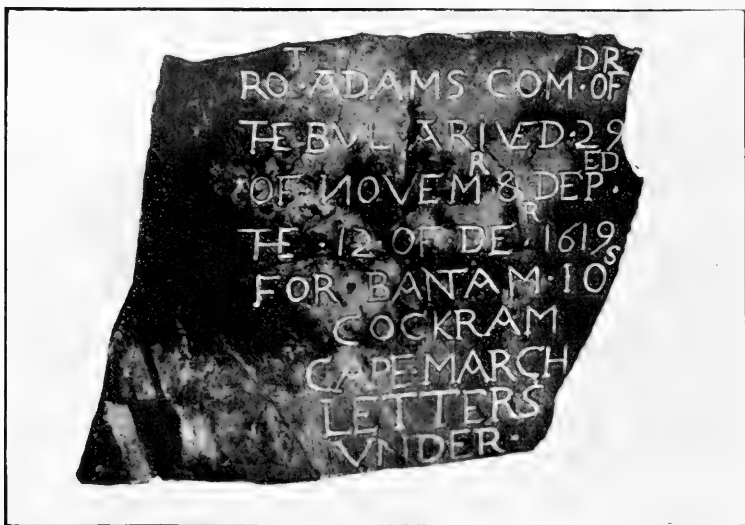 ROᵀ·ADAMS COMᴰᴿ·OF
THE BVL ARIVED·29
OF·NOVEMᴿ & DEPᴱᴰ·
THE·12 OF·DEᴿ·1619
FOR·BANTAM·IOˢ
COCKRAM
CAPE·MARCH
LETTERS
VNDER·